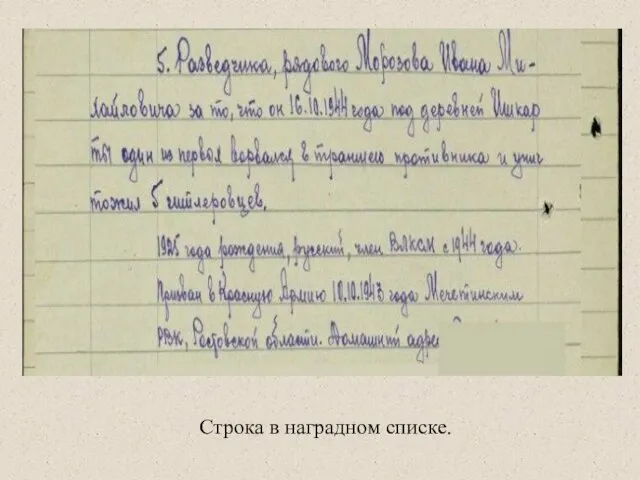 5. Разведчика, рядового Морозова Ивана Ми-
хайловича за то, что он 16.10.1944 года под деревней Ишкар
ты один из первых ворвался в траншею противника и унич
тожил 5 гитлеровцев.
1925 года рождения, русский, член ВЛКСМ с 1944 года.
Призван в Красную Армию 10.10.1943 года Мечетинским
РВК, Ростовской области. Домашний адрес
Строка в наградном списке.